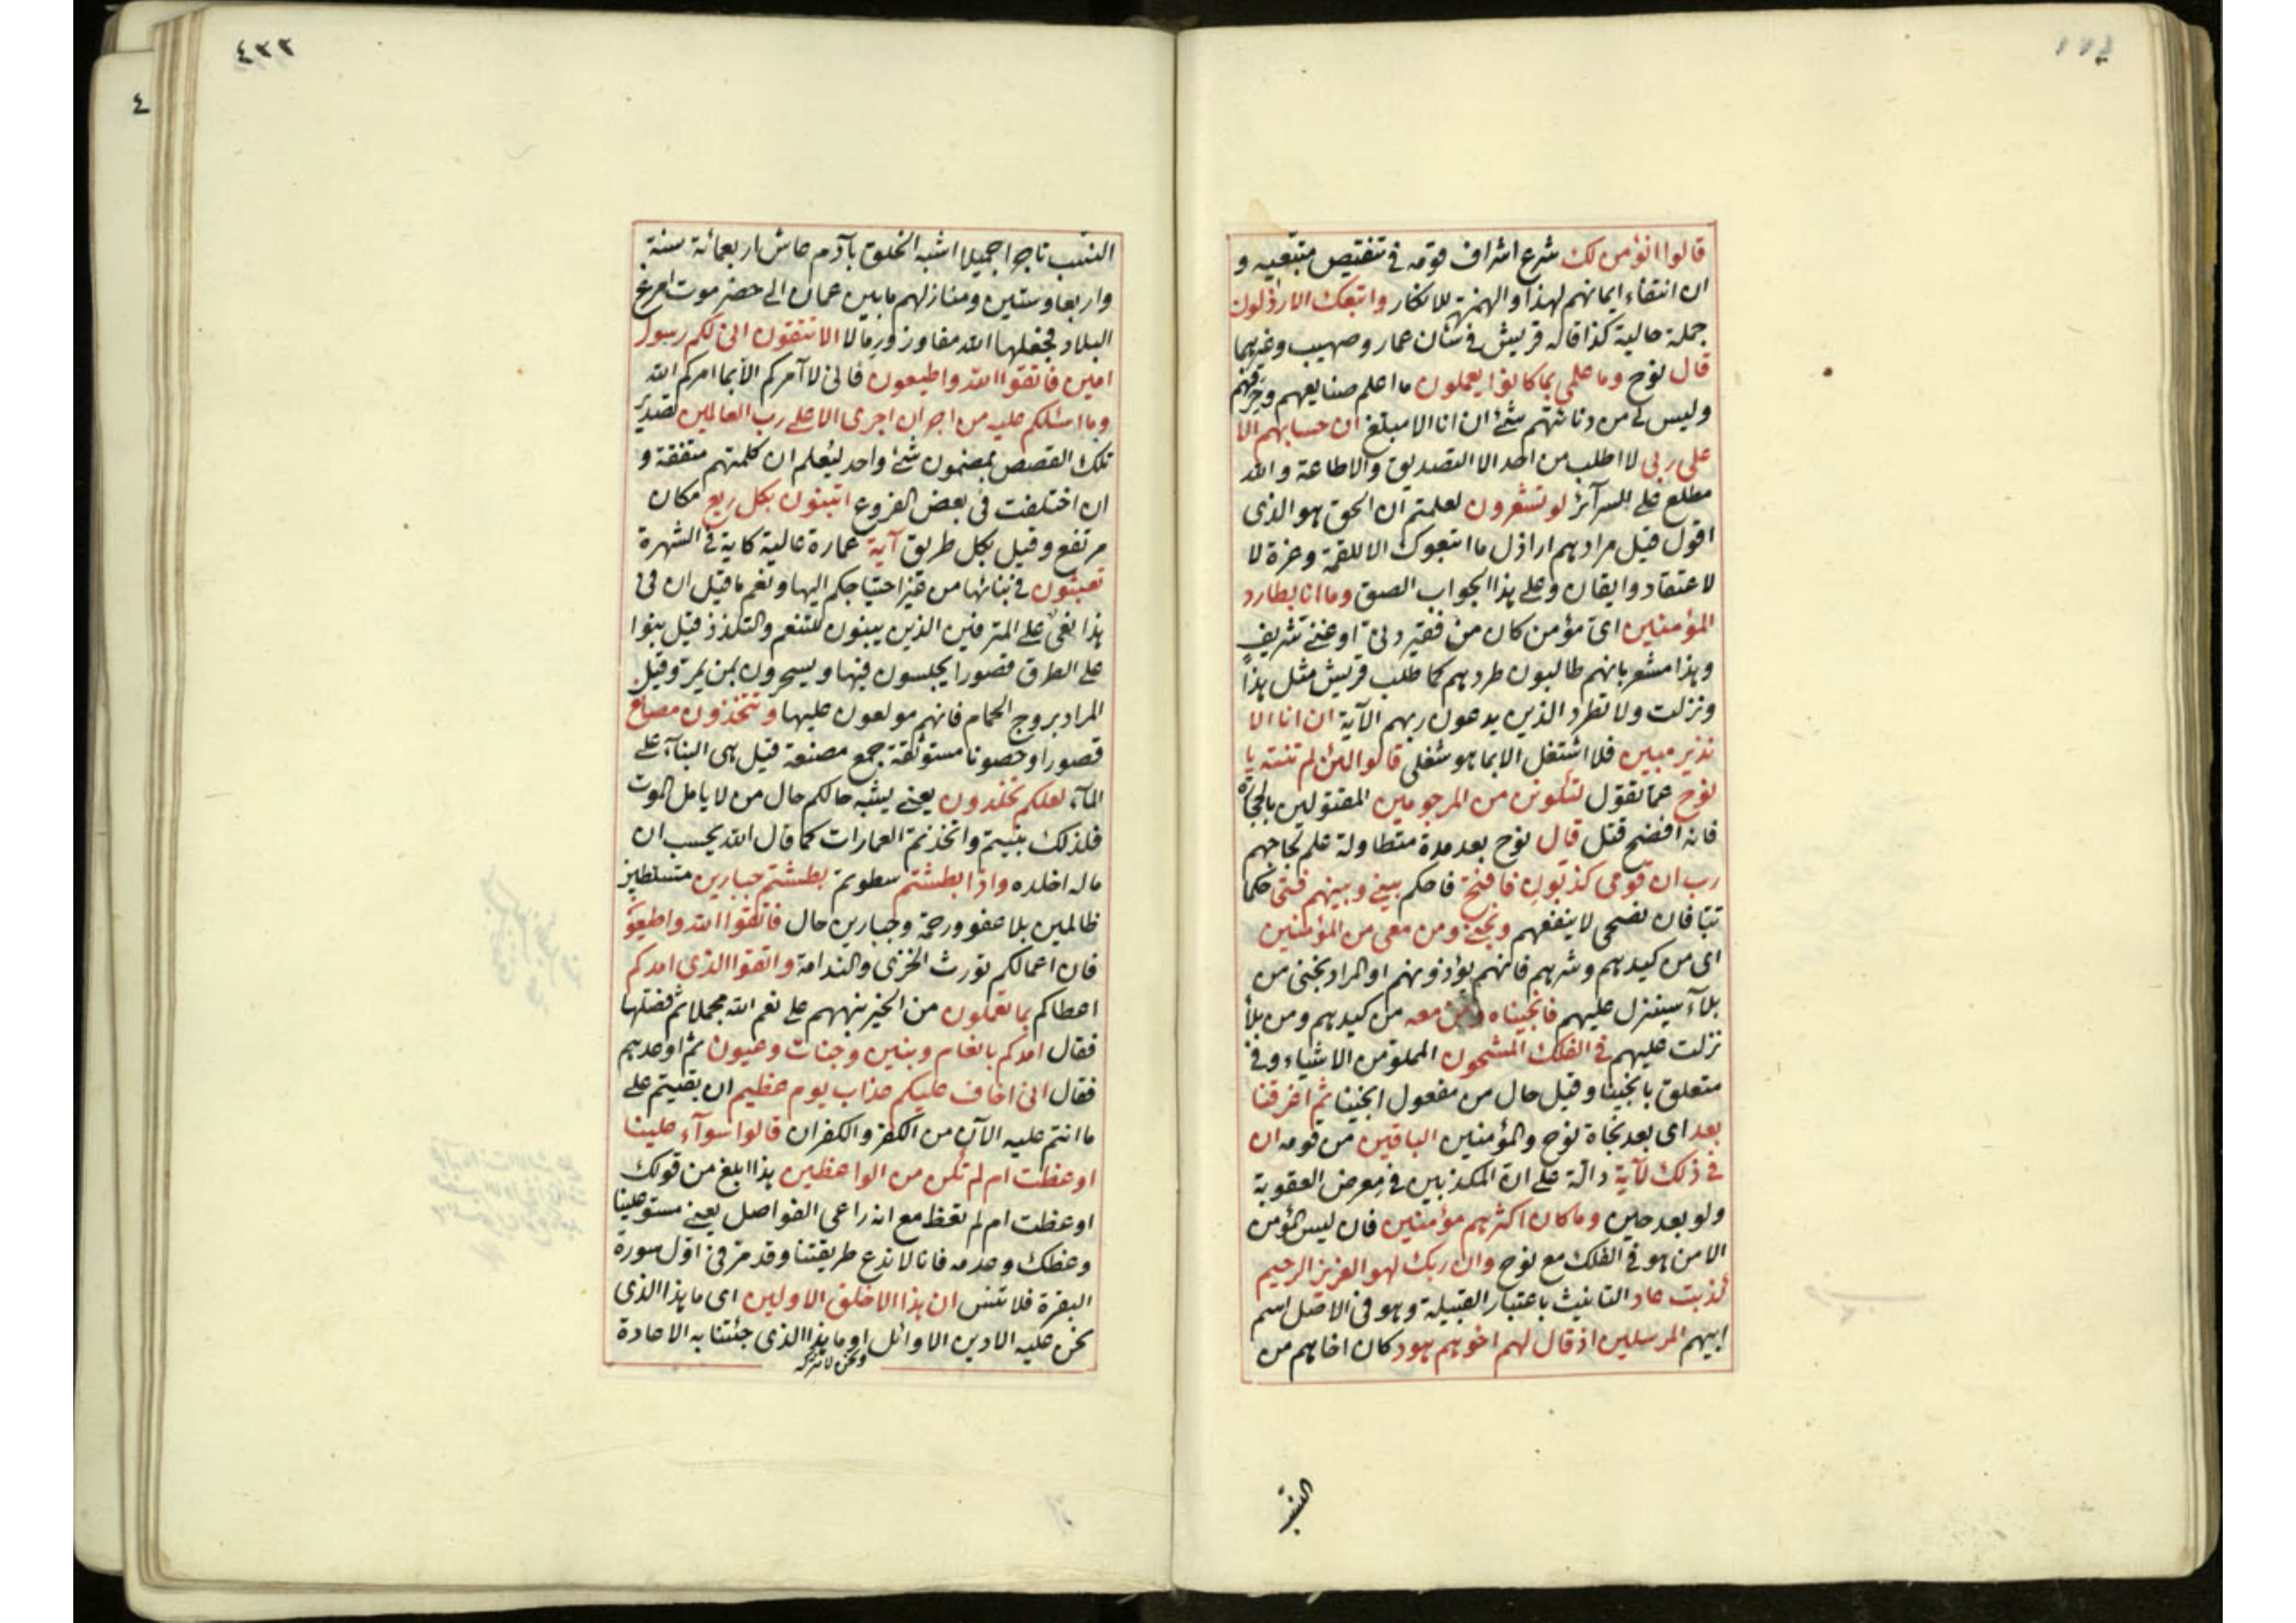 قالوا انؤمن لك شرع اشراف قومه في تنقيص متبعيه و
ان انتفاء ايمانهم لهذا والهمزة للانكار واتبعك الارذلون
جملة حالية كذا قاله قريش في شان عمار وصهيب وغيرهما
قال نوح وما علمي بما كانوا يعملون ما اعلم صنايعهم وحرفهم
وليس لي من دنائتهم شئ ان انا الا مبلغ ان حسابهم الا
على ربي لا اطلب من احد الا التصديق والاطاعة والله
مطلع على السرآئر لو تشعرون لعلمتم ان الحق هو الذي
اقول قيل مرادهم اراذل ما اتبعوك الا للقمة وعزة لا
لاعتقاد وايقان وعلى هذا الجواب الصق وما انا بطارد
المؤمنين اي مؤمن كان من فقير دني او غني شريف
وهذا مشعر بانهم طالبون طردهم كما طلب قريش مثل هذا
ونزلت ولا تطرد الذين يدعون ربهم الآية ان انا الا
نذير مبين فلا اشتغل الا بما هو شغلي قالوا لئن لم تنته يا
نوح عما تقول لتكونن من المرجومين المقتولين بالحجارة
فانه افضح قتل قال نوح بعد مدة متطاولة علم لجاجهم
رب ان قومي كذبون فافتح فاحكم بيني وبينهم فتحا حكما
تبا فان نصحي لا ينفعهم ونجني ومن معي من المؤمنين
اي من كيدهم وشرهم فانهم يؤذونهم او المراد نجني من
بلآء سينزل عليهم فانجيناه ومن معه من كيدهم ومن بلأ
نزلت عليهم في الفلك المشحون المملو من الاشياء وفي
متعلق بانجينا وقيل حال من مفعول انجينا ثم اغرقنا
بعد اي بعد نجاة نوح والمؤمنين الباقين من قومه ان
في ذلك لآية دالة على ان المكذبين في معرض العقوبة
ولو بعد حين وما كان اكثرهم مؤمنين فان ليس المؤمن
الا من هو في الفلك مع نوح وان ربك لهو العزيز الرحيم
كذبت عاد التانيث باعتبار القبيلة وهو في الاصل اسم
ابيهم المرسلين اذ قال لهم اخوهم هود كان اخاهم من
النسب
٤٣٣
٤
النسب تاجرا جميلا اشبه الخلق بآدم عاش اربعمائة سنة
واربعا وستين ومنازلهم ما بين عمان الى حضرموت امرع
البلاد فجعلها الله مفاوز ورمالا الا تتقون اني لكم رسول
امين فاتقوا الله واطيعون فاني لا آمركم الا بما امركم الله
وما اسئلكم عليه من اجر ان اجري الا على رب العالمين تصدير
تلك القصص بمضمون شئ واحد ليعلم ان كلمتهم متفقة و
ان اختلفت في بعض الفروع اتبنون بكل ريع مكان
مرتفع وقيل بكل طريق آية عمارة عالية كاية في الشهرة
تعبثون في بنائها من غير احتياجكم اليها ونعم ما قيل ان في
هذا نعي على المترفين الذين يبنون للتنعم والتلذذ قيل بنوا
على الطرق قصورا يجلسون فيها ويسخرون بمن يمر وقيل
المراد بروج الحمام فانهم مولعون عليها وتتخذون مصانع
قصورا وحصونا مستوثقة جمع مصنعة قيل هي البنآء على
المآء لعلكم تخلدون يعني يشبه حالكم حال من لا يامل الموت
فلذلك بنيتم واتخذتم العمارات كما قال الله يحسب ان
ماله اخلده واذا بطشتم سطوتم بطشتم جبارين متسلطين
ظالمين بلا عفو ورحمة وجبارين حال فاتقوا الله واطيعون
فان اعمالكم تورث الخزي والندامة واتقوا الذي امدكم
اعطاكم بما تعملون من الخير نبههم على نعم الله مجملا ثم فصلها
فقال امدكم بانعام وبنين وجنات وعيون ثم اوعدهم
فقال اني اخاف عليكم عذاب يوم عظيم ان بقيتم على
ما انتم عليه الآن من الكفر والكفران قالوا سوآء علينا
اوعظت ام لم تكن من الواعظين هذا ابلغ من قولك
اوعظت ام لم تعظ مع انه راعى الفواصل يعني مستو علينا
وعظك وعدمه فانا لا ندع طريقتنا وقد مر في اول سورة
البقرة فلا تنس ان هذا الا خلق الاولين اي ما هذا الذي
نحن عليه الا دين الاوائل او ما هذا الذي جئتنا به الا عادة
ونحن لا نتركه